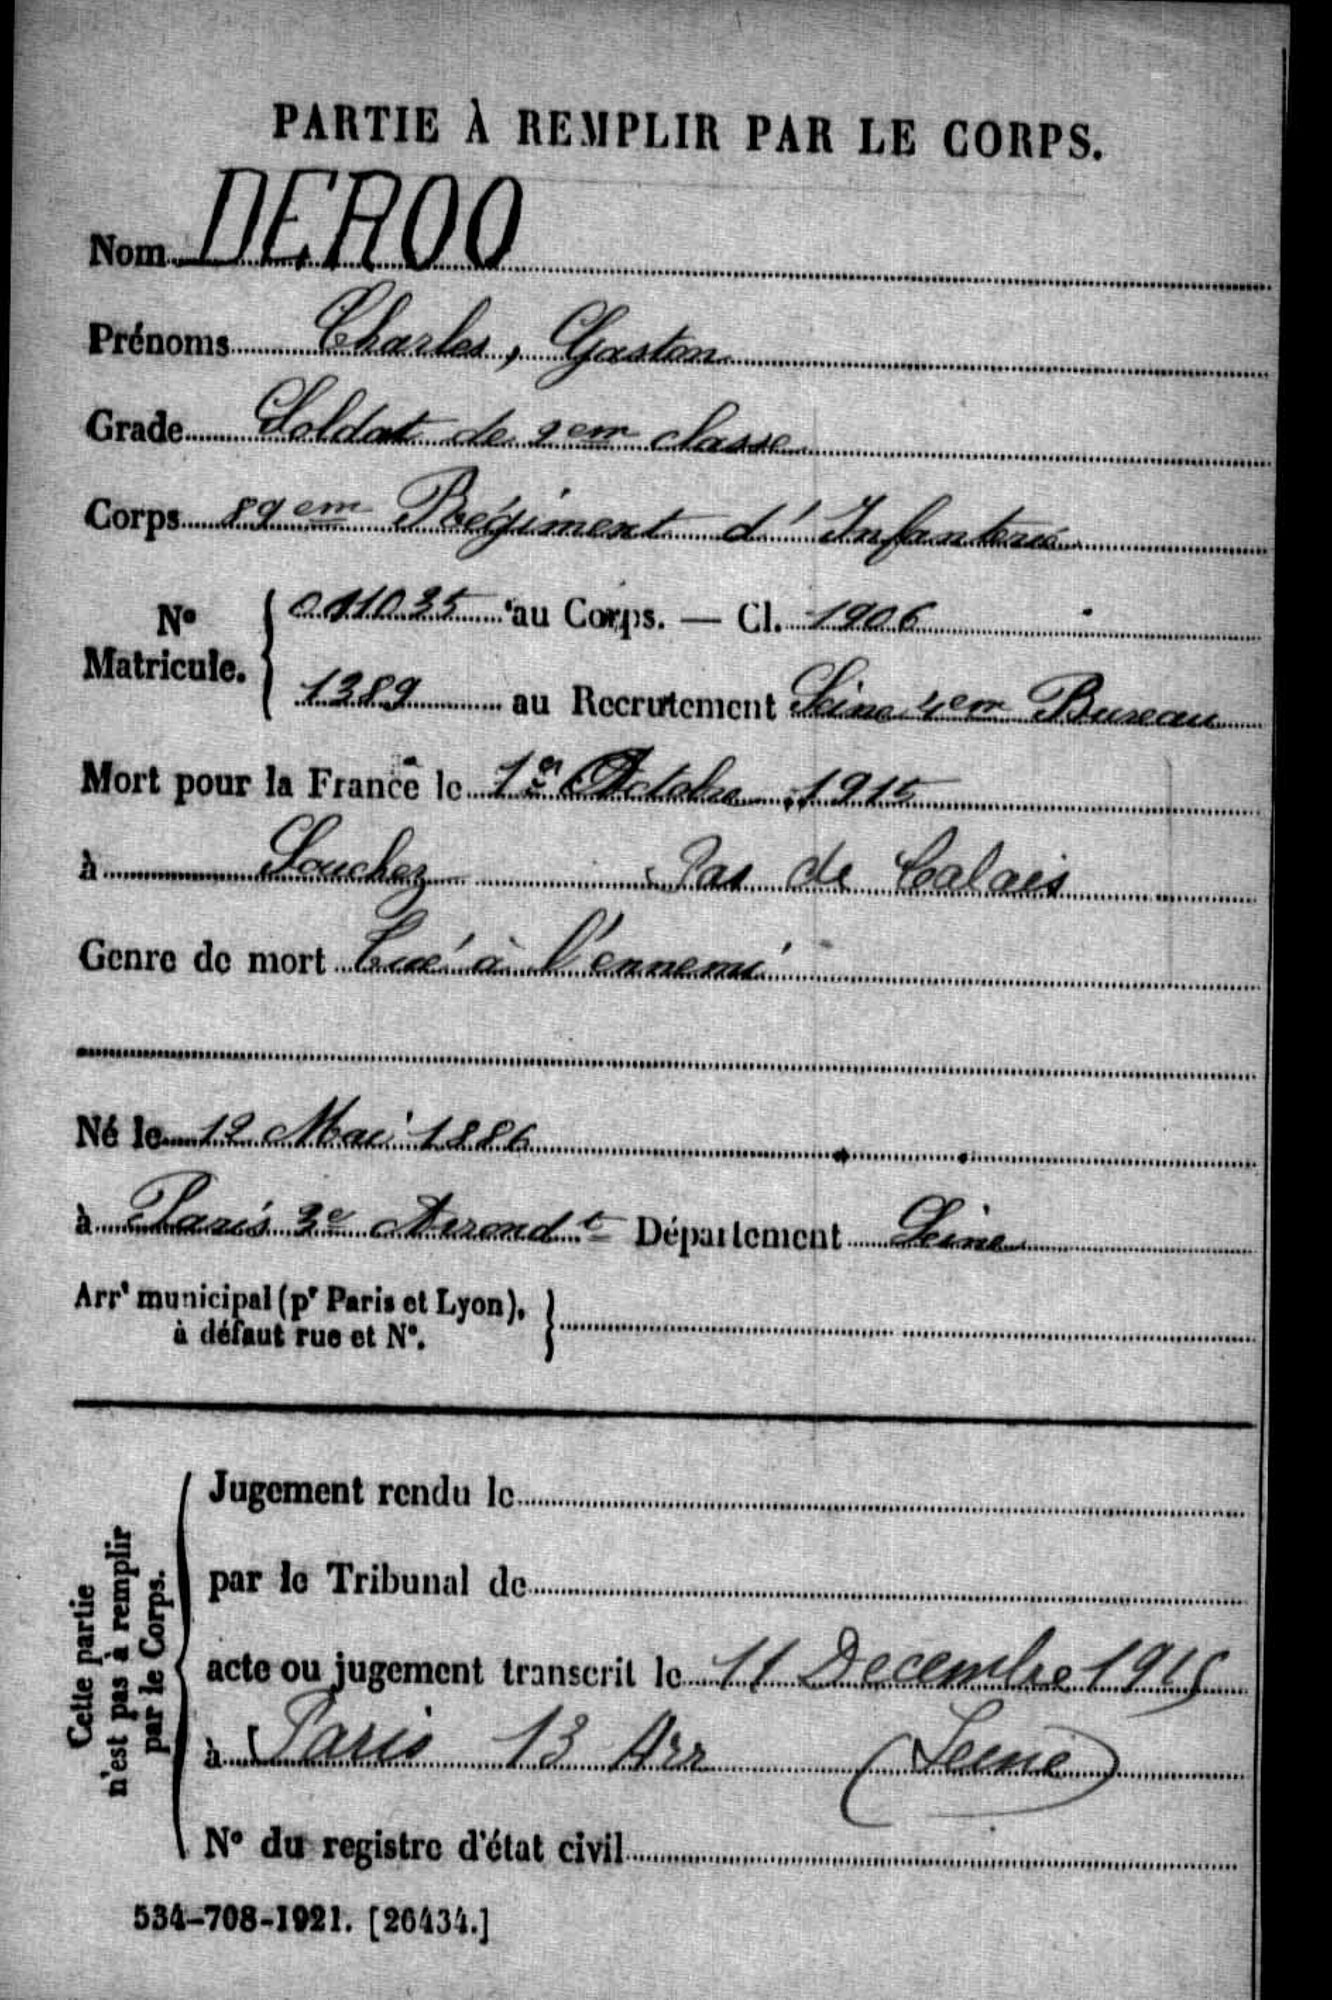 PARTIE À REMPLIR PAR LE CORPS.
Nom DEROO
Prénoms Charles, Gaston
Grade Soldat de 2em classe
Corps 89em Régiment d'Infanterie
No Matricule. { 011035 au Corps. — Cl. 1906
1389 au Recrutement Seine 4em Bureau
Mort pour la France le 1er Octobre 1915
à Souchez Pas de Calais
Genre de mort Tué à l'ennemi
Né le 12 Mai 1886
à Paris 3e Arrondt Département Seine
Arrt municipal (pr Paris et Lyon), }
à défaut rue et No.
Cette partie
n'est pas à remplir
par le Corps.
Jugement rendu le
par le Tribunal de
acte ou jugement transcrit le 11 Decembre 1915
à Paris 13 Arr (Seine)
No du registre d'état civil
534-708-1921. [26434.]